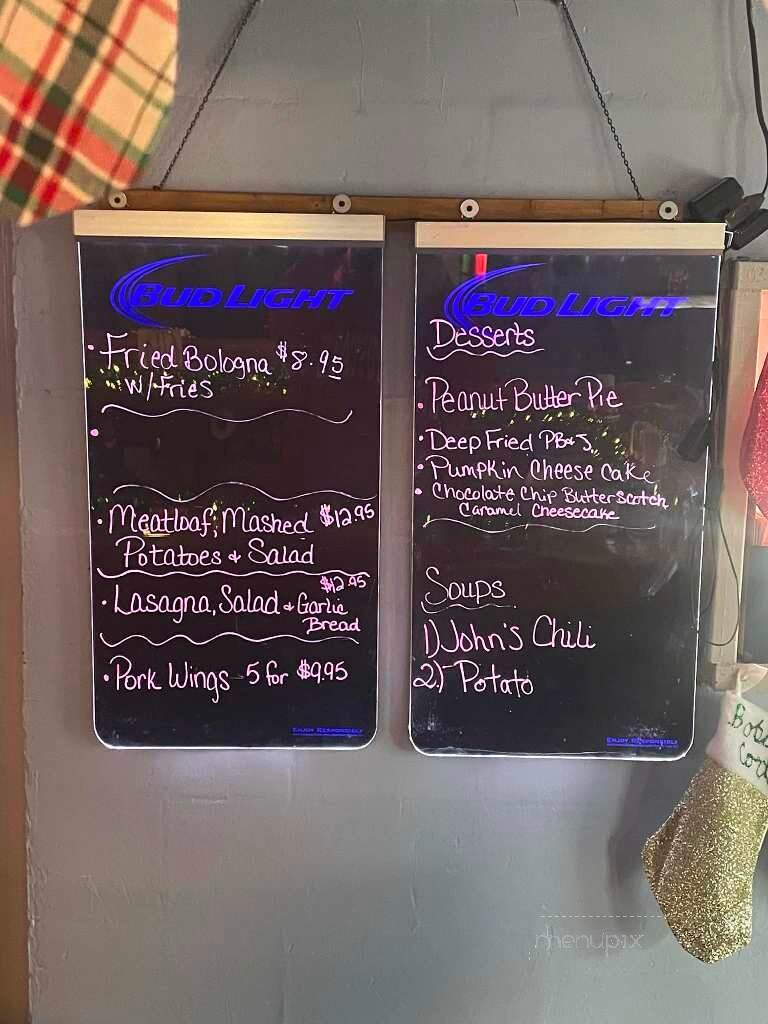 BUD LIGHT
• Fried Bologna $8.95
w/Fries
•
• Meatloaf, Mashed $12.95
Potatoes & Salad
$12.95
• Lasagna, Salad & Garlic
Bread
• Pork Wings 5 for $9.95
ENJOY RESPONSIBLY
BUD LIGHT
Desserts
• Peanut Butter Pie
• Deep Fried PB&J
• Pumpkin Cheese Cake
• Chocolate Chip Butterscotch
Caramel Cheesecake
Soups
1) John's Chili
2.) Potato
ENJOY RESPONSIBLY
menupix